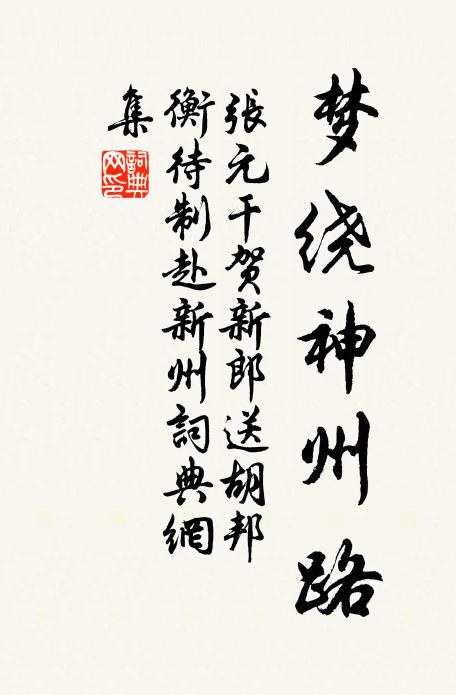 梦绕神州路
張元干贺新郎送胡邦
衡待制赴新州詞典網
集
詞典
网印